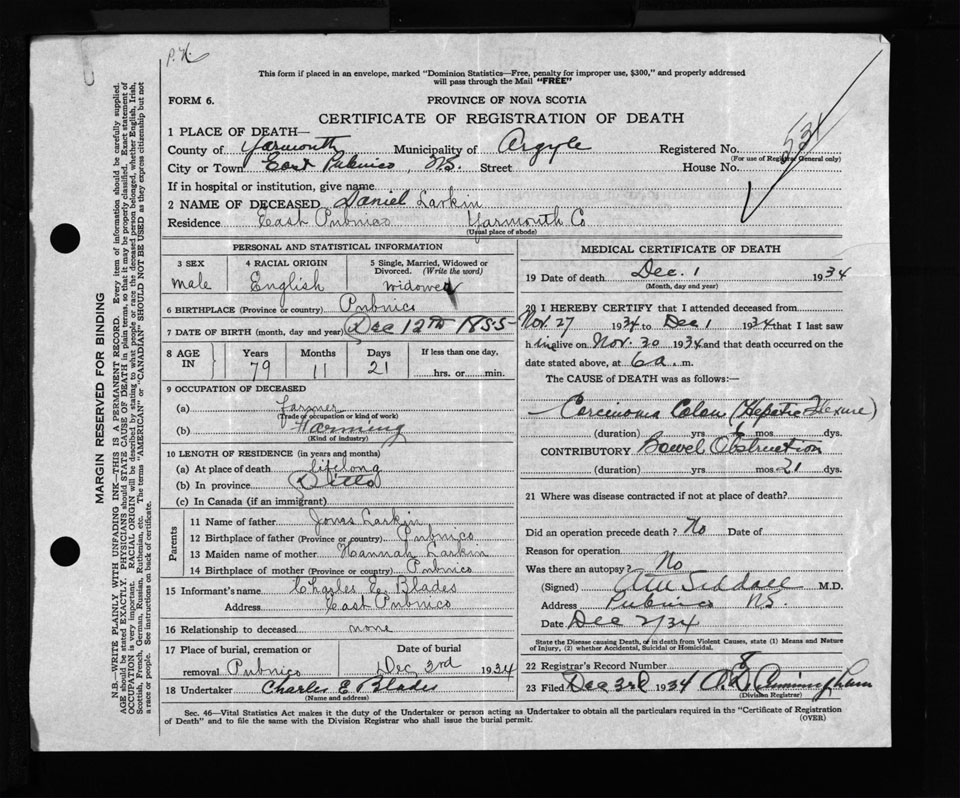 P.H.
This form if placed in an envelope, marked "Dominion Statistics—Free, penalty for improper use, $300," and properly addressed
will pass through the Mail "FREE"
FORM 6.
PROVINCE OF NOVA SCOTIA
CERTIFICATE OF REGISTRATION OF DEATH
1 PLACE OF DEATH—
County of Yarmouth Municipality of Argyle Registered No. 534
(For use of Registrar General only)
City or Town East Pubnico, N.S. Street House No.
If in hospital or institution, give name
2 NAME OF DECEASED Daniel Larkin
Residence East Pubnico Yarmouth Co
(Usual place of abode)
PERSONAL AND STATISTICAL INFORMATION
3 SEX 4 RACIAL ORIGIN 5 Single, Married, Widowed or
Divorced. (Write the word)
Male English Widowed
6 BIRTHPLACE (Province or country) Pubnico
7 DATE OF BIRTH (month, day and year) Dec 12th 1855
8 AGE IN Years Months Days If less than one day,
79 11 21 hrs. or min.
9 OCCUPATION OF DECEASED
(a) Farmer
(Trade of occupation or kind of work)
(b) Farming
(Kind of industry)
10 LENGTH OF RESIDENCE (in years and months)
(a) At place of death lifelong
(b) In province Ditto
(c) In Canada (if an immigrant)
Parents
11 Name of father Jonas Larkin
12 Birthplace of father (Province or country) Pubnico
13 Maiden name of mother Hannah Larkin
14 Birthplace of mother (Province or country) Pubnico
15 Informant's name Charles E. Blades
Address East Pubnico
16 Relationship to deceased none
17 Place of burial, cremation or Date of burial
removal Pubnico Dec 3rd 1934
18 Undertaker Charles E Blades
(Name and address)
MEDICAL CERTIFICATE OF DEATH
19 Date of death Dec. 1 1934
(Month, day and year)
20 I HEREBY CERTIFY that I attended deceased from
Nov. 27 1934 to Dec 1 1934 that I last saw
him alive on Nov. 30 1934 and that death occurred on the
date stated above, at 6 a. m.
The CAUSE OF DEATH was as follows:
Carcinoma Colon (Hepatic Flexure)
(duration) yrs 6 mos. dys.
CONTRIBUTORY Bowel Obstruction
(duration) yrs mos. 21 dys.
21 Where was disease contracted if not at place of death?
Did an operation precede death? No Date of
Reason for operation
Was there an autopsy? No
(Signed) Siddall M.D.
Address Pubnico N.S.
Date Dec 2/34
State the Disease causing Death, or in death from Violent Causes, state (1) Means and Nature
of Injury, (2) whether Accidental, Suicidal or Homicidal.
22 Registrar's Record Number 8
23 Filed Dec 3rd 1934
(Division Registrar)
Sec. 46—Vital Statistics Act makes it the duty of the Undertaker or person acting as Undertaker to obtain all the particulars required in the "Certificate of Registration
of Death" and to file the same with the Division Registrar who shall issue the burial permit.
(OVER)
MARGIN RESERVED FOR BINDING
N.B.—WRITE PLAINLY WITH UNFADING INK—THIS IS A PERMANENT RECORD. Every item of information should be carefully supplied.
AGE should be stated EXACTLY. PHYSICIANS should STATE CAUSE OF DEATH in plain terms, so that it may be properly classified. Exact statement of
OCCUPATION is very important. RACIAL ORIGIN will be described by stating to what people or race the deceased person belonged, whether English, Irish,
Scottish, French, German, Russian, Ruthenian, etc. The terms "AMERICAN" or "CANADIAN" SHOULD NOT BE USED as they express citizenship but not
a race or people. See instructions on back of certificate.